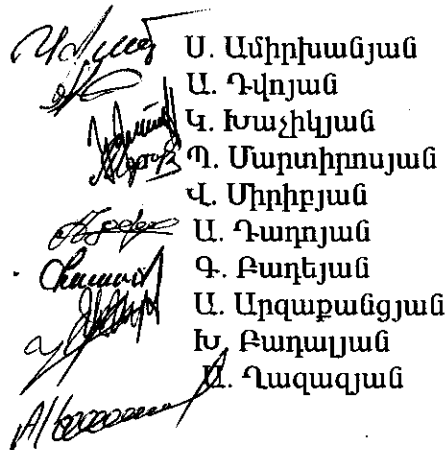 Ս. Ամիրխանյան
Ա. Դվոյան
Կ. Խաչիկյան
Պ. Մարտիրոսյան
Վ. Միրիբյան
Ա. Դադոյան
Գ. Բադեյան
Ա. Արզաքանցյան
Խ. Բադալյան
Ա. Ղազազյան